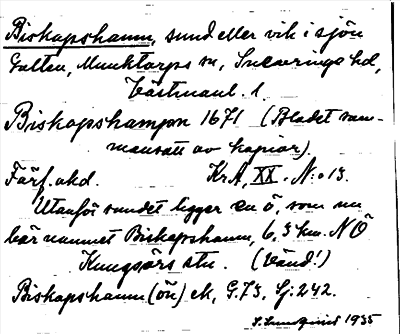 Biskopshamn, sund eller vik i sjön
Galten, Munktorps sn, Snevringe hd,
Västmanl. l.
Biskopshampn 1671 (Bladet sam-
mansatt av kopior).
Färf. akd. KrA, XX. N:o 13.
Utanför sundet ligger en ö, som nu
bär namnet Biskopshamn, 6,3 km. NÖ
Kungsörs stn. (Vänd!)
Biskopshamn (ön) ek, G.73, Sj:242.
S. Lundquist 1935